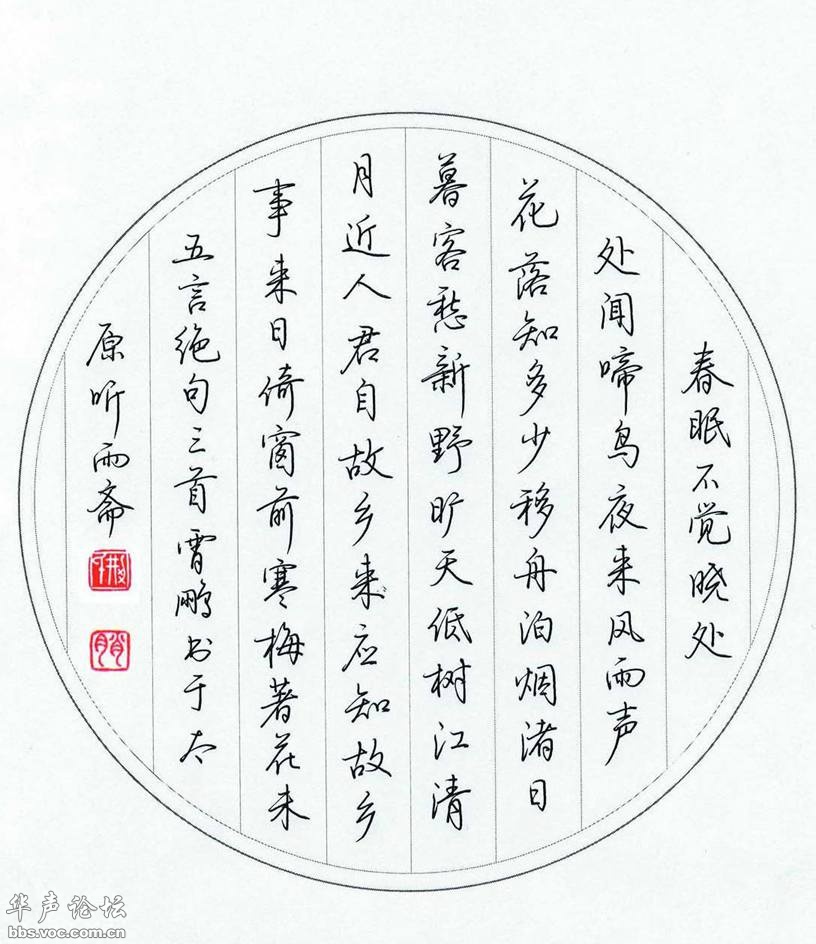 春眠不觉晓处
处闻啼鸟夜来风雨声
花落知多少移舟泊烟渚日
暮客愁新野旷天低树江清
月近人君自故乡来应知故乡
事来日倚窗前寒梅著花未
五言绝句三首霄鹏书于太
原听雨斋
华声论坛
bbs.voc.com.cn